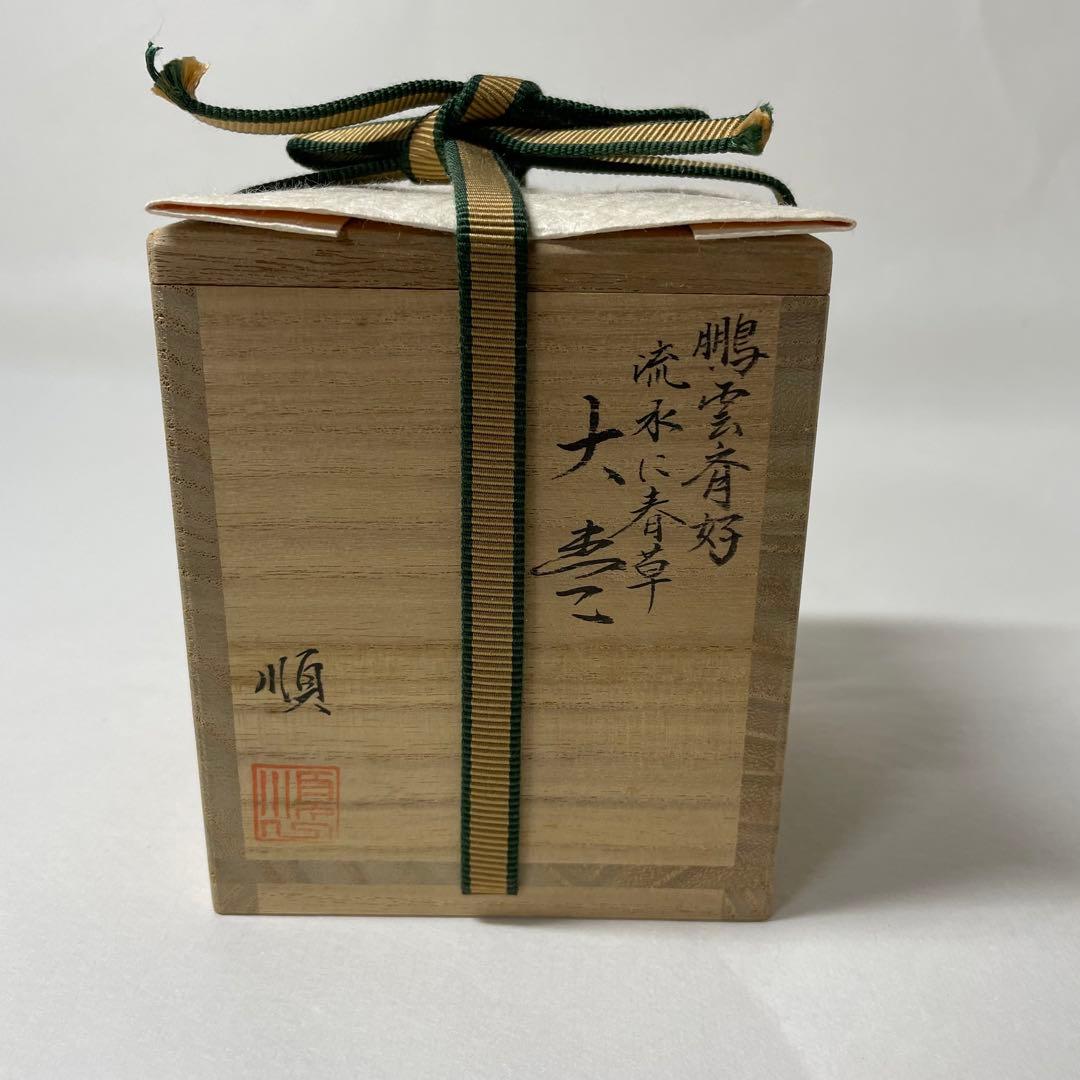 鵬雲斎好
流水に春草
大棗
順
順